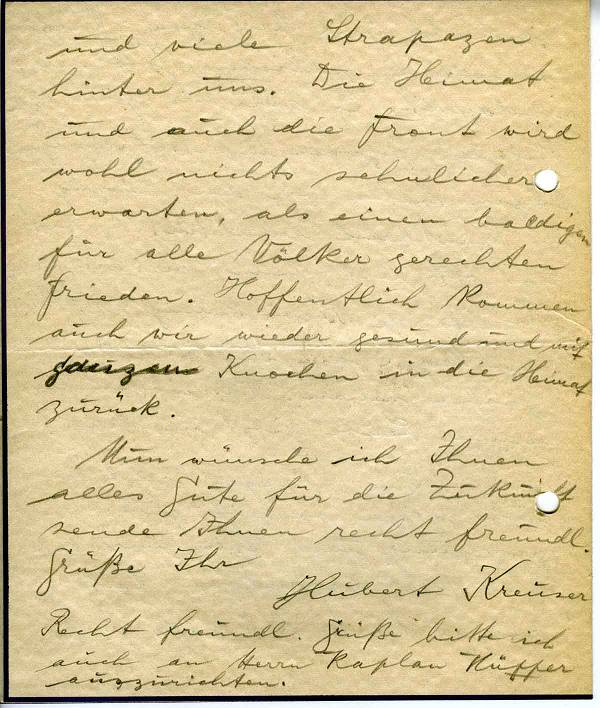 und viele Strapazen
hinter uns. Die Heimat
und auch die Front wird
wohl nichts sehnlicher
erwarten, als einen baldigen
für alle Völker gerechten
Frieden. Hoffentlich kommen
auch wir wieder gesund und mit
ganzen Knochen in die Heimat
zurück.
Nun wünsche ich Ihnen
alles Gute für die Zukunft
sende Ihnen recht freundl.
Grüße Ihr
Hubert Kreuser
Recht freundl. Grüße bitte ich
auch an Herrn Kaplan Hüffer
auszurichten.